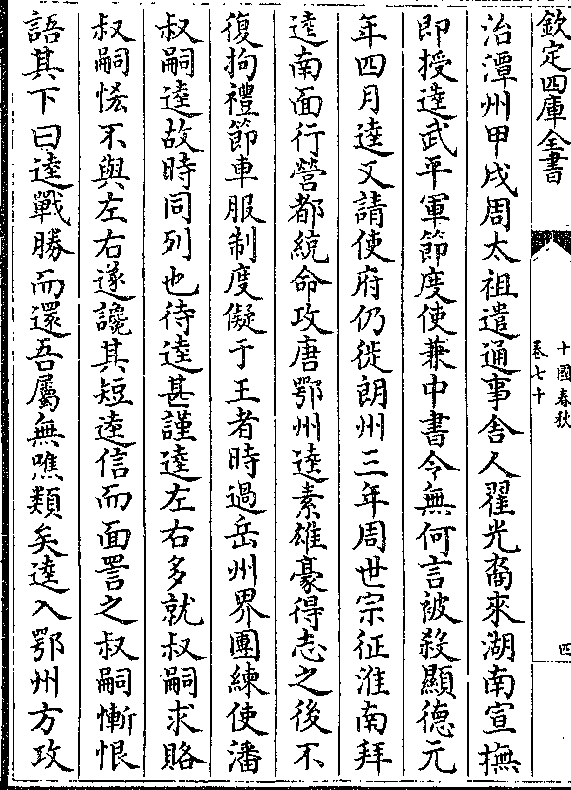 欽定四庫全書
十國春秋
卷七十
四
治潭州甲戌周太祖遣通事舍人翟光裔來湖南宣撫
即授逵武平軍節度使兼中書令無何言被殺顯德元
年四月逵又請使府仍徙朗州三年周世宗征淮南拜
逵南面行營都統命攻唐鄂州逵素雄豪得志之後不
復拘禮節車服制度儗于王者時過岳州界團練使潘
叔嗣逵故時同列也待逵甚謹逵左右多就叔嗣求賂
叔嗣恡不與左右遂讒其短逵信而面詈之叔嗣慚恨
語其下曰逵戰勝而還吾屬無噍類矣逵入鄂州方攻